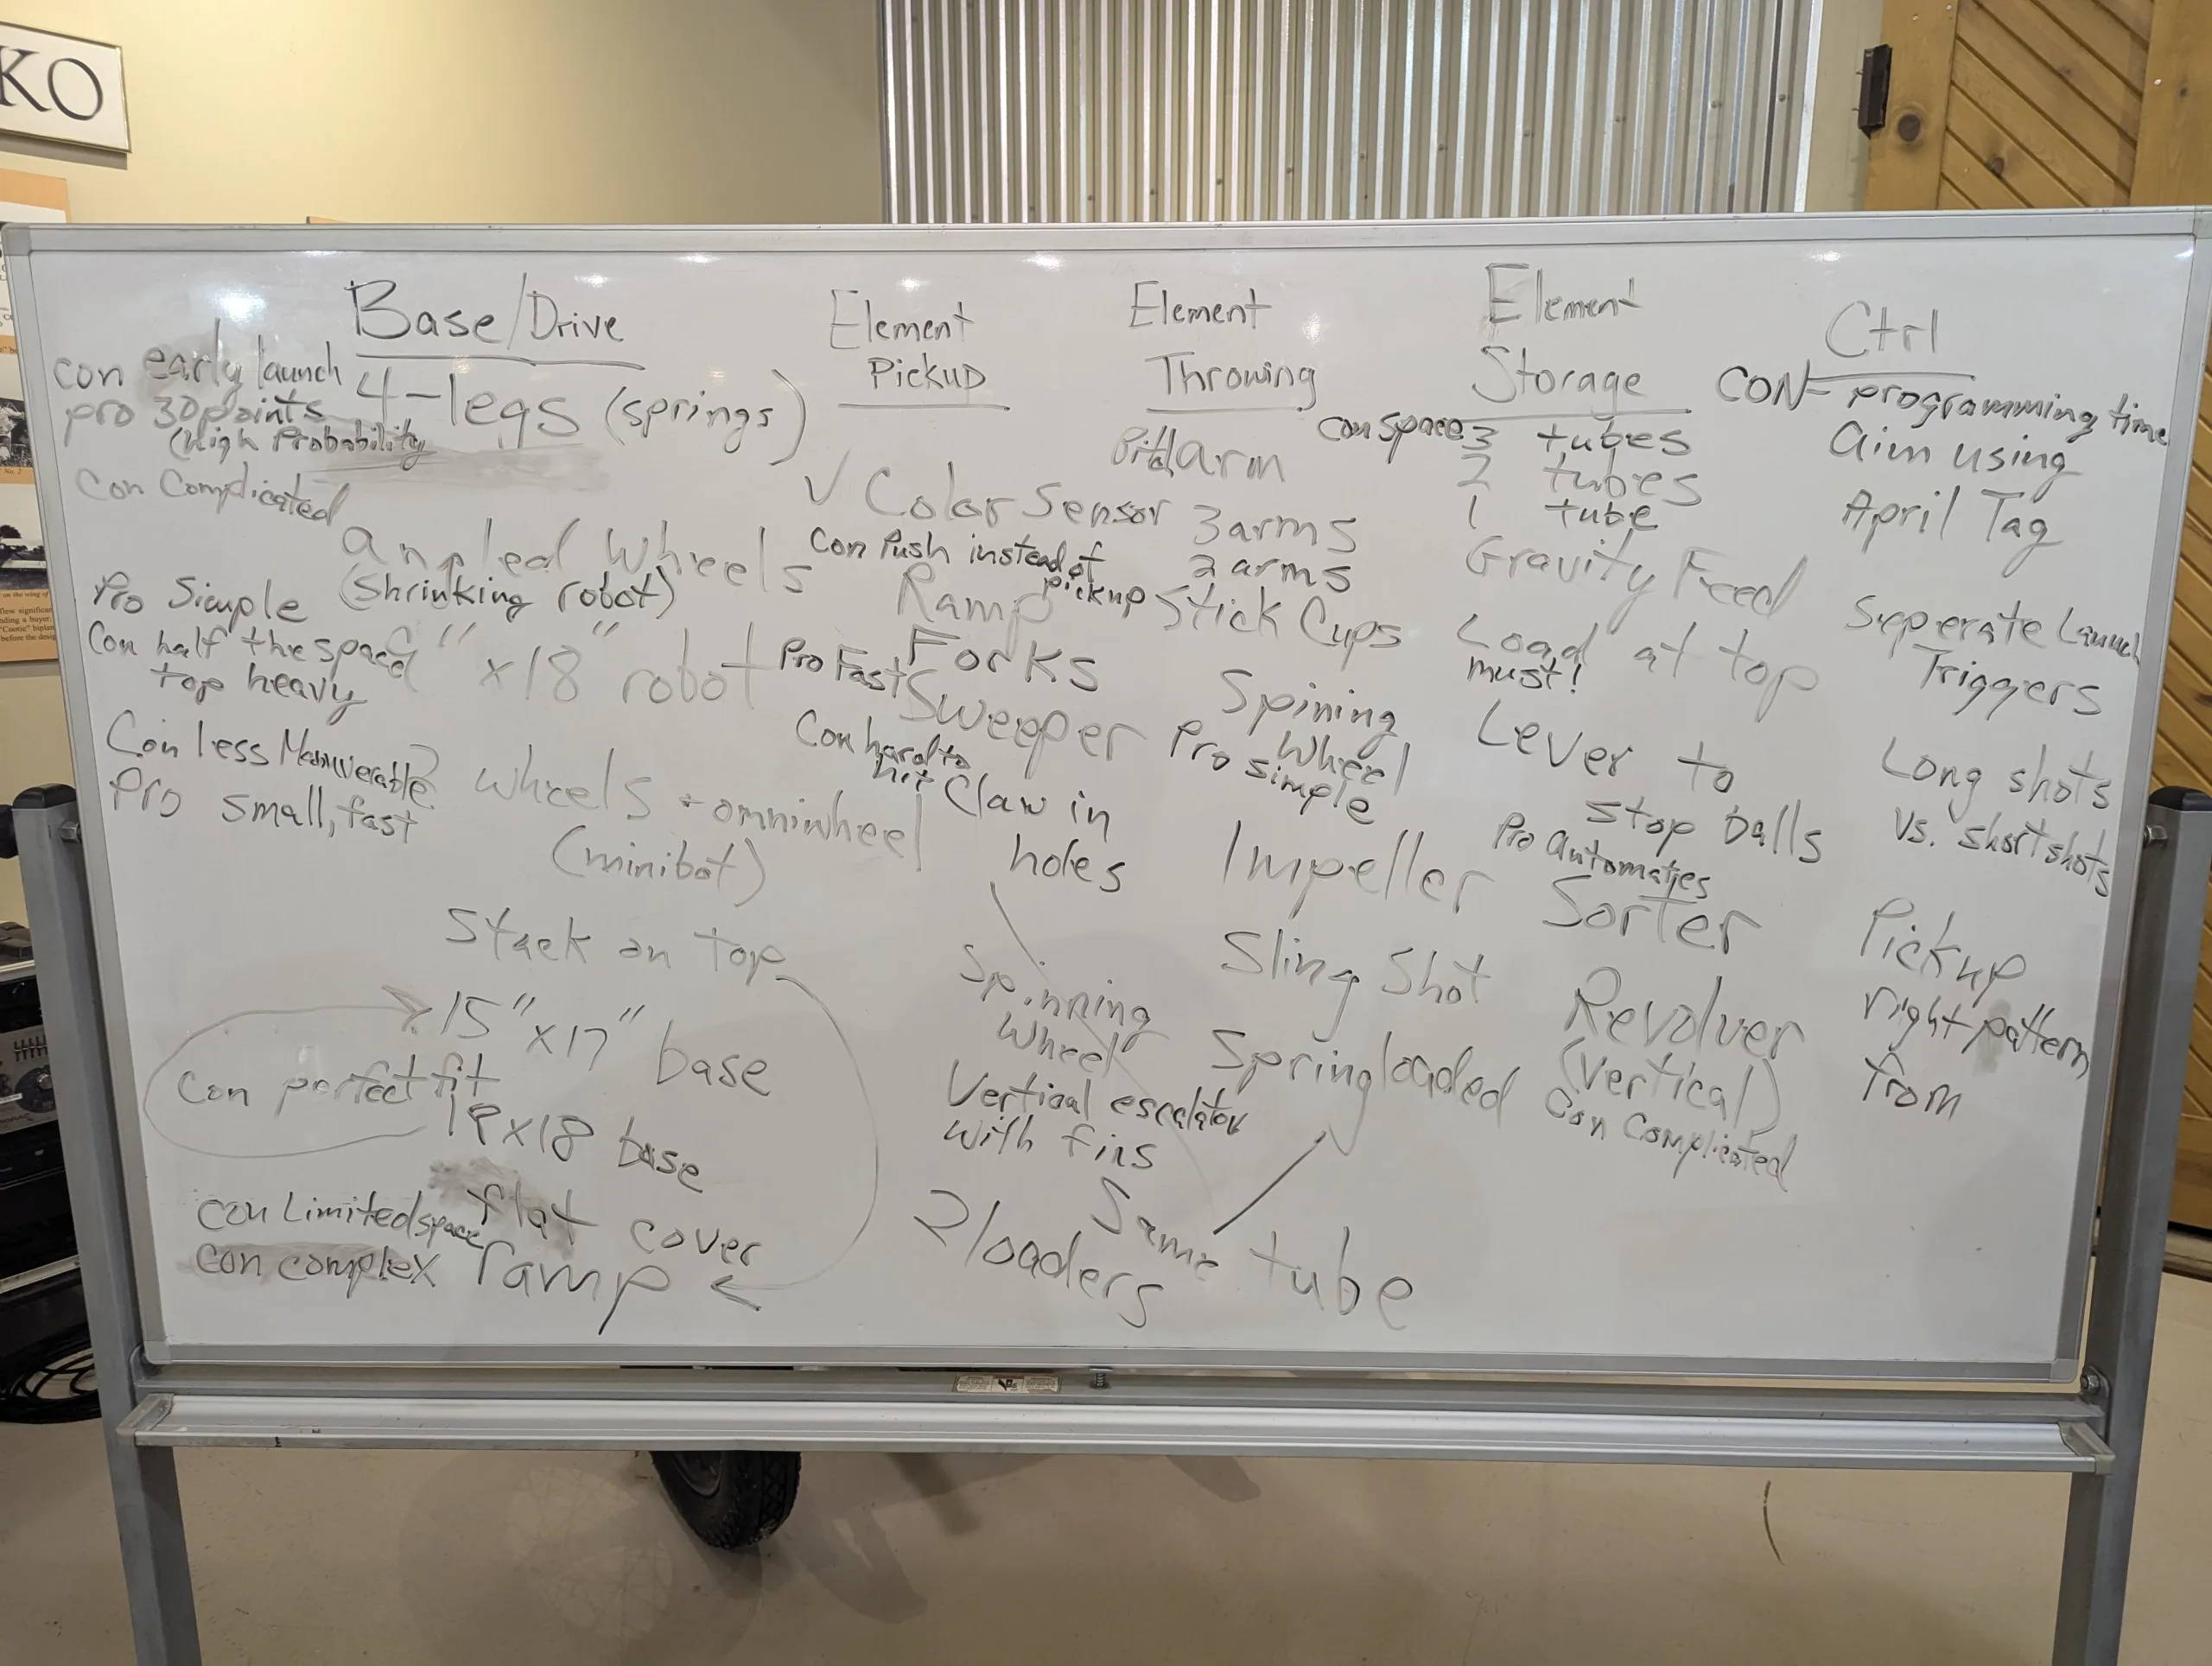 KO
Base/Drive
con early launch
pro 30 points
(high Probability
4-legs (springs)
Con Complicated
angled Wheels
(shrinking robot)
Pro Simple
Con half the space
top heavy
9" x 18" robot
Con less Manuverable
Pro small, fast
2 wheels + omniwheel
(minibot)
Stack on top
15" x 17" base
Con perfect fit
18 x 18 base
flat cover
Con Limited space
con complex
ramp
Element
Pickup
✓ Color Sensor
Con Push instead of
pickup
Ramp
Forks
Pro Fast
Sweeper
Con hard to
hit
Claw in
holes
Spinning
Wheel
Vertical escalator
with fins
2 loaders
Element
Throwing
arm
3 arms
2 arms
Stick Cups
Spining
Wheel
Pro simple
Impeller
Sling Shot
Spring loaded
Same tube
Element
Storage
con space
3 tubes
2 tubes
1 tube
Gravity Feed
Load at top
must!
Lever to
stop balls
Pro automates
Sorter
Revolver
(vertical)
Con Complicated
Ctrl
CON- programming time
Aim using
April Tag
Seperate Launch
Triggers
Long shots
vs. short shots
Pickup
right pattern
from